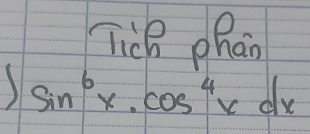 Tích phân
∫ sin⁶x . cos⁴x dx